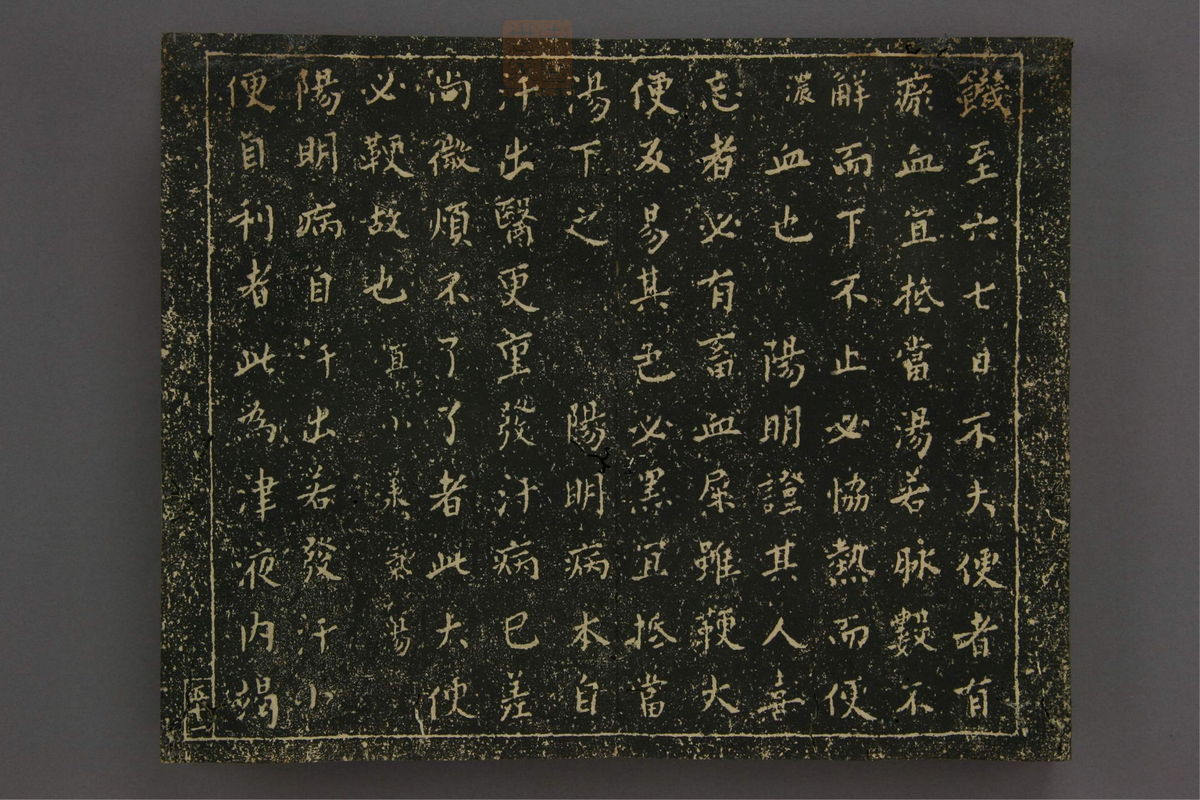 饑至六七日不大便者有
瘀血宜抵當湯若脉數不
解而下不止必協熱而便
濃血也　陽明證其人喜
忘者必有畜血屎雖鞕大
便反易其色必黑宜抵當
湯下之　　陽明病本自
汗出醫更重發汗病已差
尚微煩不了了者此大便
必鞕故也宜小氣湯
陽明病自汗出若發汗小
便自利者此為津液内竭
五十二